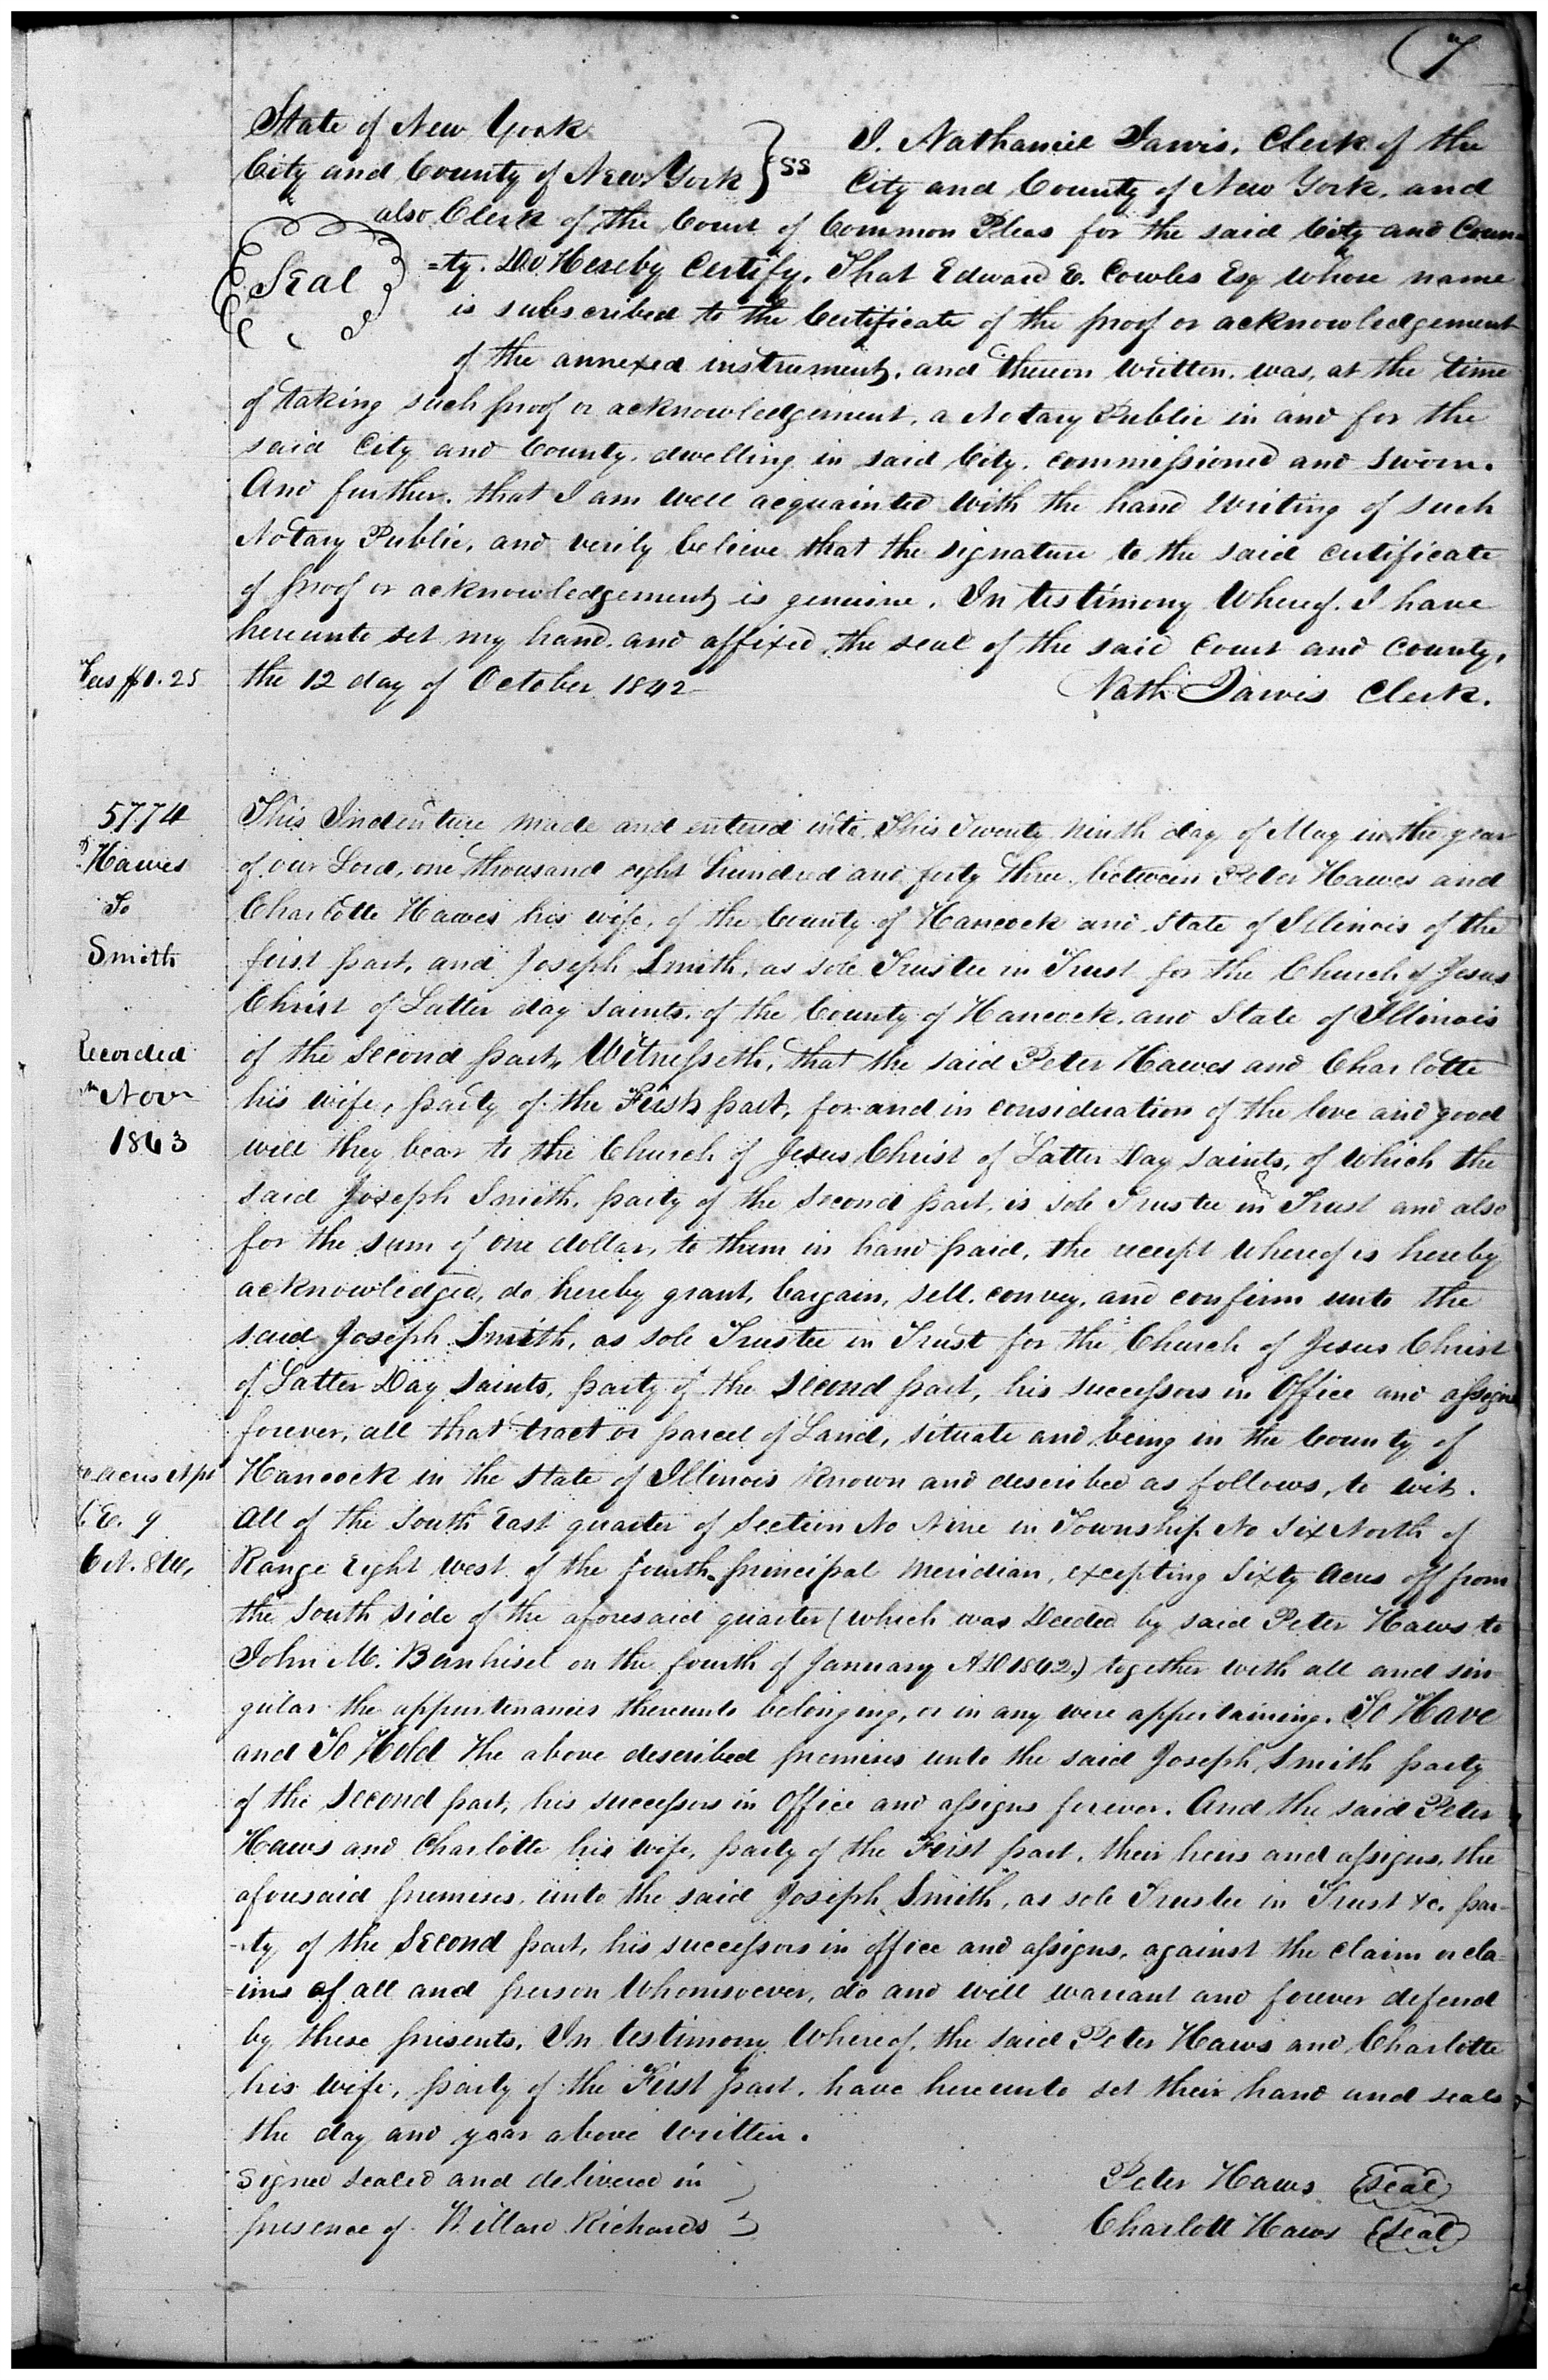 7
State of New York
City and County of New York } SS
I. Nathaniel Jarvis, Clerk of the
City and County of New York, and
also Clerk of the Court of Common Pleas for the said City and Coun-
Seal
=ty. Do Hereby Certify, That Edward E. Cowles Esq whose name
is subscribed to the Certificate of the proof or acknowledgement
of the annexed instrument, and thereon written, was, at the time
of taking such proof or acknowledgement, a Notary Public in and for the
said City and County, dwelling in said City, commissioned and sworn.
And further, that I am well acquainted with the hand writing of such
Notary Public, and verily believe that the signature to the said certificate
of proof or acknowledgement is genuine. In testimony Whereof. I have
hereunto set my hand, and affixed the seal of the said Court and County,
Fees $0.25
the 12 day of October 1842
Nath Jarvis Clerk.
5774
Hawes
To
Smith
This Indenture made and entered into This Twenty Ninth day of May in the year
of our Lord, one thousand eight hundred and forty three, between Peter Hawes and
Charlotte Hawes his wife, of the County of Hancock and State of Illinois of the
first part, and Joseph Smith, as sole Trustee in Trust for the Church of Jesus
Christ of Latter day saints, of the County of Hancock, and State of Illinois
Recorded
Nov
1843
of the Second part, Witnesseth, that the said Peter Hawes and Charlotte
his wife, party of the First part, for and in consideration of the love and good
will they bear to the Church of Jesus Christ of Latter Day Saints, of which the
said Joseph Smith, party of the Second part, is sole Trustee in Trust and also
for the sum of one dollar, to them in hand paid, the receipt whereof is hereby
acknowledged, do hereby grant, bargain, sell, convey, and confirm unto the
said Joseph Smith, as sole Trustee in Trust for the Church of Jesus Christ
of Latter Day Saints, party of the Second part, his successors in Office and assigns
forever, all that tract or parcel of Land, situate and being in the County of
Hancock in the State of Illinois Known and described as follows, to wit.
acres pt
E. 9
6 N. 8 W,
All of the South East quarter of Section No Nine in Township No Six North of
Range Eight West of the fourth principal Meridian, excepting Sixty Acres off from
the South side of the aforesaid quarter (which was Deeded by said Peter Haws to
John M. Bernhisel on the fourth of January AD 1842.) together with all and sin-
gular the appurtenances thereunto belonging, or in any wise appertaining. To Have
and To Hold The above described premises unto the said Joseph Smith party
of the Second part, his successors in Office and assigns forever. And the said Peter
Haws and Charlotte his wife, party of the First part, their heirs and assigns, the
aforesaid premises, unto the said Joseph Smith, as sole Trustee in Trust &c. par-
-ty of the Second part, his successors in office and assigns, against the claim or cla-
=ims of all and person Whomsoever, do and will warrant and forever defend
by these presents. In testimony Whereof, the said Peter Haws and Charlotte
his wife, party of the First part, have hereunto set their hand and seals
the day and year above written.
Signed sealed and delivered in
presence of Willard Richards
Peter Haws Seal
Charlott Haws Seal